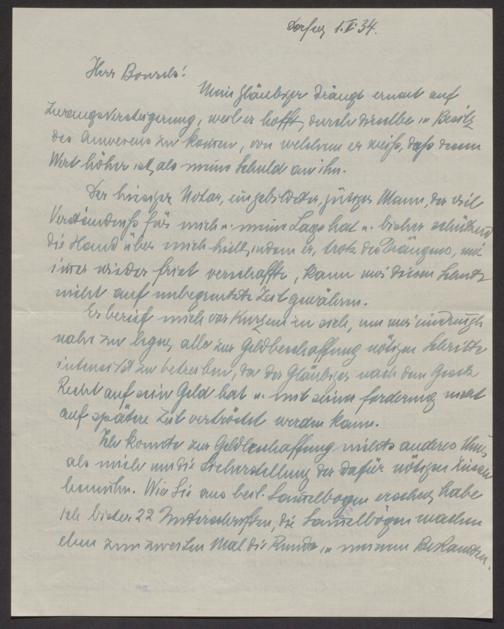 1.V.34.
Herr Bonsels!
Mein Gläubiger drängt erneut auf
Zwangsversteigerung, weil er hofft, durch dieselbe in Besitz
des Anwesens zu kommen, von welchem er weiß, daß dessen
Wert höher ist, als meine Schuld an ihn.
Der hiesige Notar, ein gebildeter, gütiger Mann, der viel
Verständniß für mich u. meine Lage hat u. bisher schützend
die Hand über mich hielt, indem er, trotz des Drängens, mir
immer wieder Frist verschaffte, kann mir diesen Schutz
nicht auf unbegrenzte Zeit gewähren.
Er berief mich vor Kurzem zu sich, um mir eindringlich
nahe zu legen, alle zur Geldbeschaffung nötigen Schritte
intensivst zu betreiben, da der Gläubiger nach dem Gesetz
Recht auf sein Geld hat u. mit seiner Forderung nicht
auf spätere Zeit vertröstet werden kann.
Ich konnte zur Geldbeschaffung nichts anderes thun,
als mich um die Sicherstellung der dafür nötigen Zinsen
bemühn. Wie Sie aus beil. Sammelbogen ersehen, habe
ich bisher 22 Unterschriften, die Sammelbögen machen
eben zum zweiten Mal die Runde in meinem Bekannten.